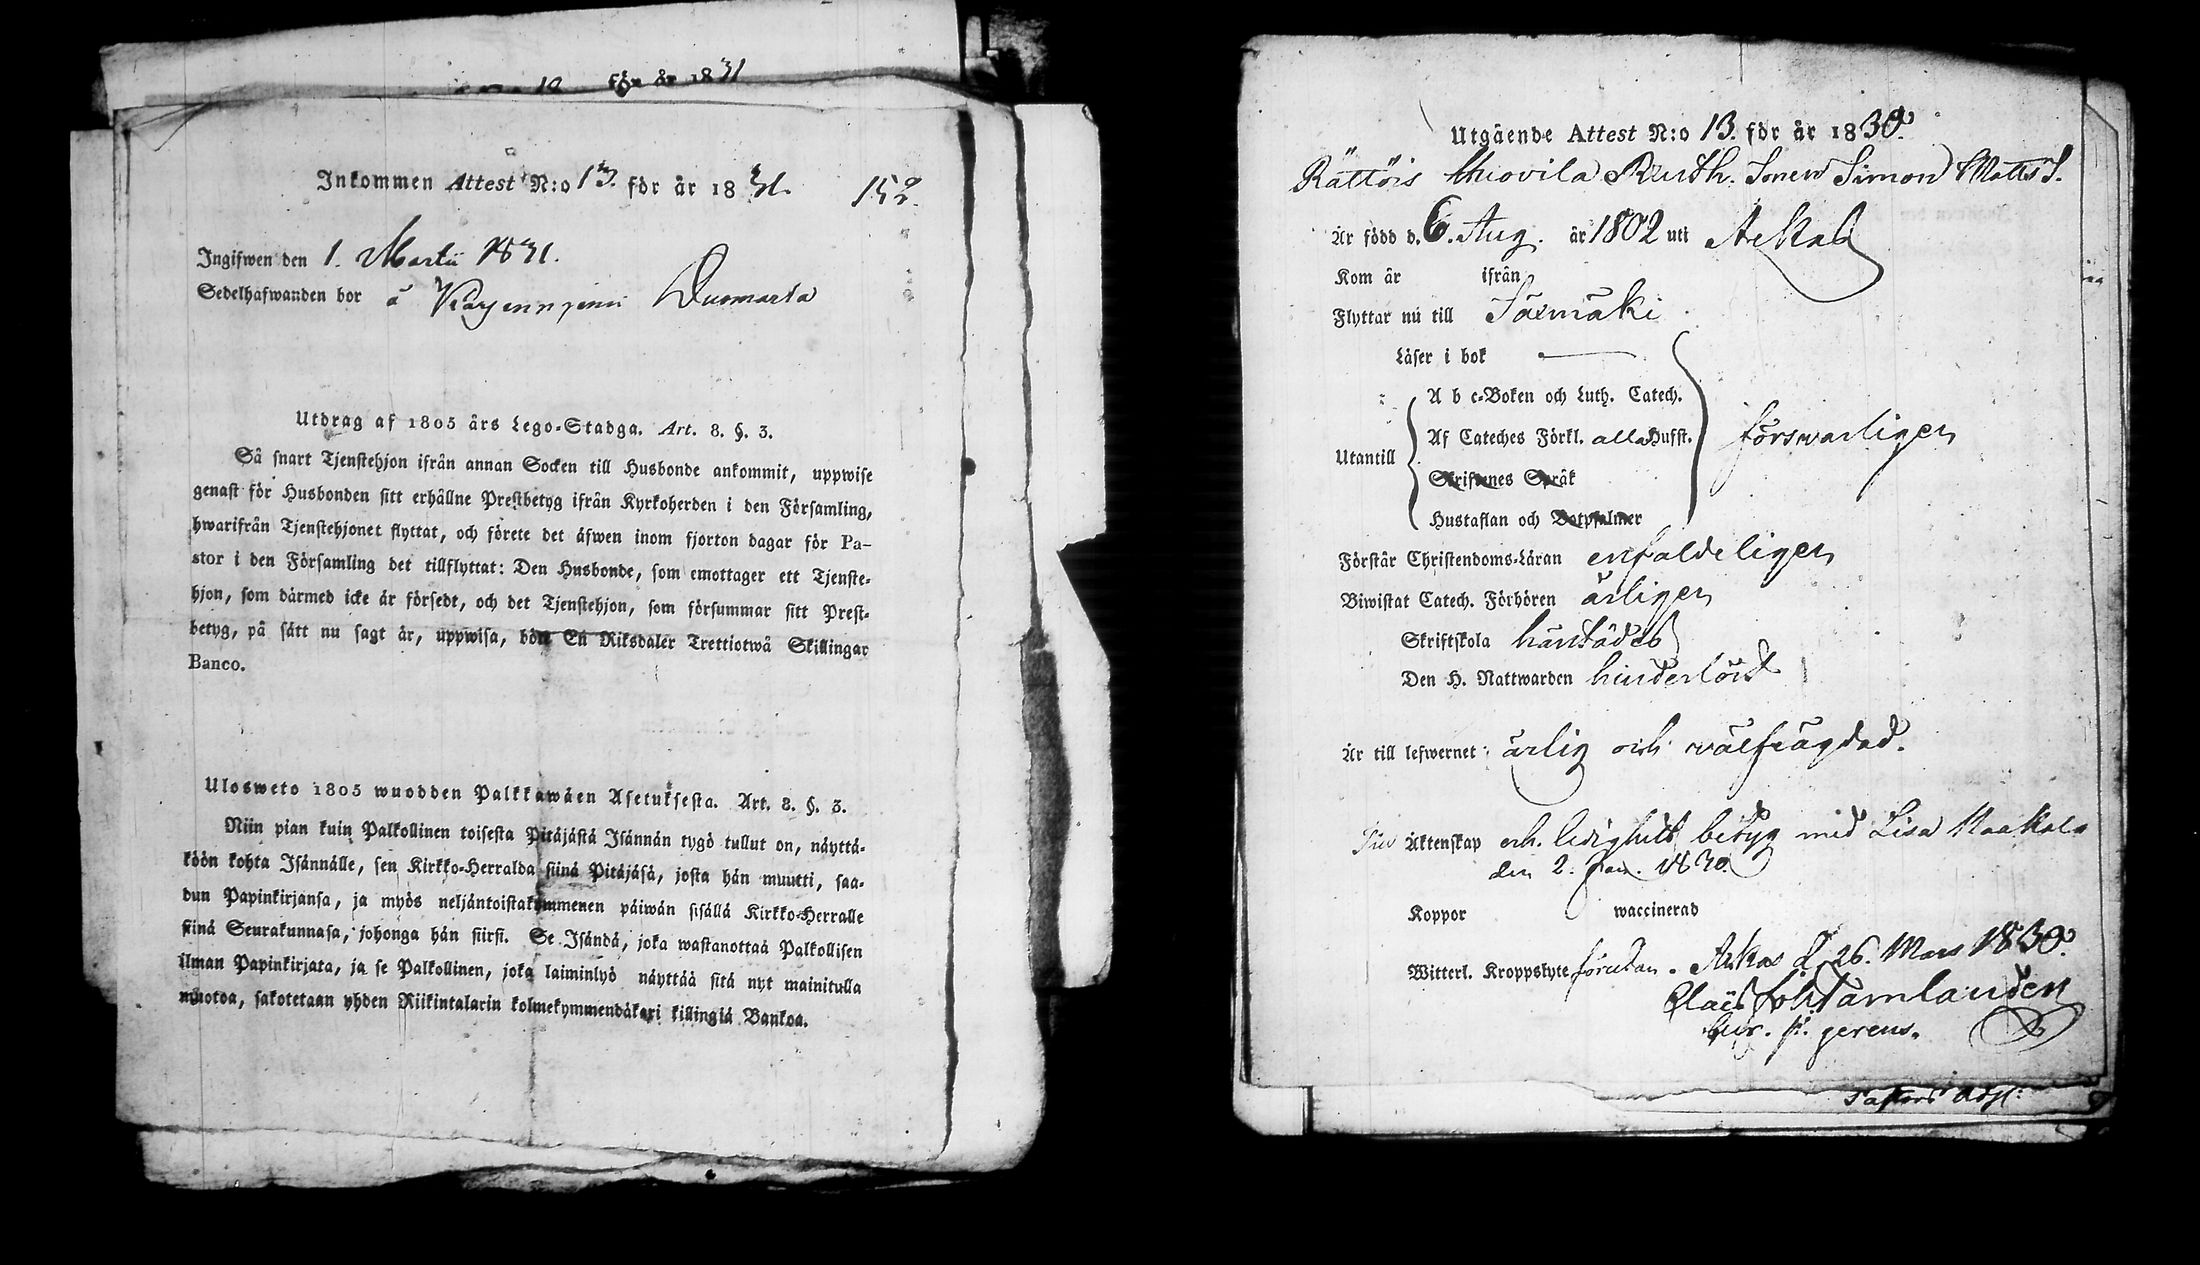 10 för år 1831
Inkommen Attest N:o 13. för år 1831. 152.
Ingifwen den 1. Martii 1831.
Sedelhafwanden bor å
Utdrag af 1805 års Lego-Stadga. Art. 8. §. 3.
Så snart Tjenstehjon ifrån annan Socken till Husbonde ankommit, uppwise
genast för Husbonden sitt erhållne Prestbetyg ifrån Kyrkoherden i den Församling,
hwarifrån Tjenstehjonet flyttat, och förete det äfwen inom fjorton dagar för Pa-
stor i den Församling det tillflyttat: Den Husbonde, som emottager ett Tjenste-
hjon, som därmed icke är försedt, och det Tjenstehjon, som försummar sitt Prest-
betyg, på sätt nu sagt är, uppwisa, böte En Riksdaler Trettiotwå Skillingar
Banco.
Ulosweto 1805 wuodden Palkkawäen Asetuksesta. Art. 8. §. 3.
Niin pian kuin Palkollinen toisesta Pitäjästä Isännän tygö tullut on, näyttä-
köön kohta Isännälle, sen Kirkko-Herralda siinä Pitäjäsä, josta hän muutti, saa-
dun Papinkirjansa, ja myös neljäntoistakymmenen päiwän sisällä Kirkko-Herralle
siinä Seurakunnasa, johonga hän siirsi. Se Isändä, joka wastanottaa Palkollisen
ilman Papinkirjata, ja se Palkollinen, joka laiminlyö näyttää sitä nyt mainitulla
muotoa, sakotetaan yhden Riikintalarin kolmekymmendäkaxi killingiä Bankoa.
Utgående Attest N:o 13. för år 1830.
Rättöis Sonen Simon Matts S.
Är född d. 6. Aug. år 1802 uti Ackas
Kom år ifrån
Flyttar nu till Säxmäki
Läser i bok
A b c-Boken och Luth. Catech.
Af Cateches Förkl. alla Hufst. försvarligen
Utantill
Skriftenes Språk
Hustaflan och Botpsalmer
Förstår Christendoms-Läran enfaldeligen
Biwistat Catech. Förhören årligen
Skriftskola
Den H. Nattwarden hinderlöst
Är till lefwernet: ärlig och välfrägdad.
Äktenskap erh. ledighets betyg med Lisa
den 2. Jan. 1830.
Koppor waccinerad
Witterl. Kroppslyte förutan. Ackas d. 26. Mars 1830.
Cur. p. gerens.